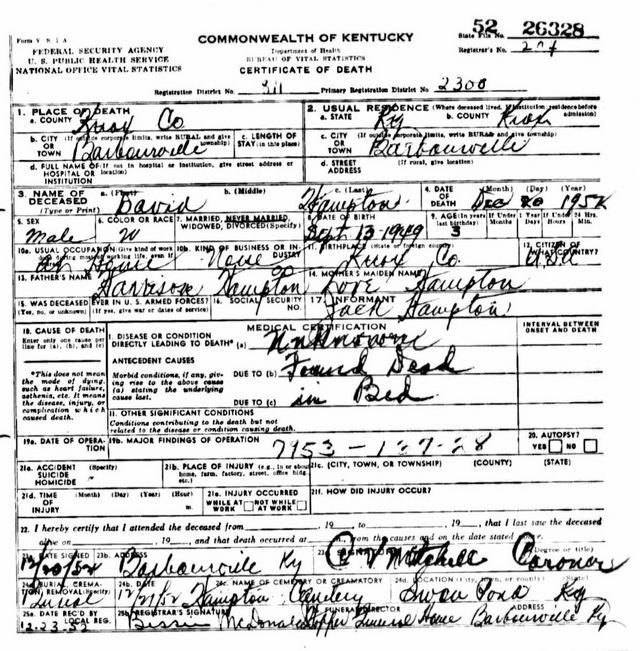 52 26328
Form V S 1 A
COMMONWEALTH OF KENTUCKY
State File No.
FEDERAL SECURITY AGENCY
U. S. PUBLIC HEALTH SERVICE
NATIONAL OFFICE VITAL STATISTICS
Department of Health
BUREAU OF VITAL STATISTICS
CERTIFICATE OF DEATH
Registrar's No.
Registration District No. 211 Primary Registration District No. 2300
1. PLACE OF DEATH
a. COUNTY Knox Co
2. USUAL RESIDENCE (Where deceased lived. If institution residence before admission)
a. STATE Ky b. COUNTY Knox
b. CITY (If outside corporate limits, write RURAL and give township)
OR TOWN Barbourville
c. LENGTH OF STAY (in this place)
c. CITY (If outside corporate limits, write RURAL and give township)
OR TOWN Barbourville
d. FULL NAME OF (If not in hospital or institution, give street address or location)
HOSPITAL OR INSTITUTION
d. STREET ADDRESS (If rural, give location)
3. NAME OF DECEASED (Type or Print)
a. (First) b. (Middle) c. (Last)
David Hampton
4. DATE OF DEATH (Month) (Day) (Year)
Dec 20 1952
5. SEX Male
6. COLOR OR RACE W
7. MARRIED, NEVER MARRIED, WIDOWED, DIVORCED (Specify)
8. DATE OF BIRTH Sept 13 1949
9. AGE (In years last birthday) 3
If Under 1 Year Months Days
If Under 24 Hrs. Hours Min.
10a. USUAL OCCUPATION (Give kind of work done during most of working life, even if retired)
House
10b. KIND OF BUSINESS OR INDUSTRY
None
11. BIRTHPLACE (State or foreign country)
Knox Co
12. CITIZEN OF WHAT COUNTRY?
U.S.A
13. FATHER'S NAME
Harrison Hampton
14. MOTHER'S MAIDEN NAME
Love Hampton
15. WAS DECEASED EVER IN U. S. ARMED FORCES?
(Yes, no, or unknown) (If yes, give war or dates of service)
16. SOCIAL SECURITY NO.
17. INFORMANT
Jack Hampton
18. CAUSE OF DEATH
Enter only one cause per line for (a), (b), and (c)
MEDICAL CERTIFICATION
INTERVAL BETWEEN ONSET AND DEATH
I. DISEASE OR CONDITION
DIRECTLY LEADING TO DEATH* (a) Unknown
*This does not mean the mode of dying, such as heart failure, asthenia, etc. It means the disease, injury, or complication which caused death.
ANTECEDENT CAUSES
Morbid conditions, if any, giving rise to the above cause (a) stating the underlying cause last.
DUE TO (b) Found Dead
DUE TO (c) in Bed
II. OTHER SIGNIFICANT CONDITIONS
Conditions contributing to the death but not related to the disease or condition causing death.
19a. DATE OF OPERATION
19b. MAJOR FINDINGS OF OPERATION
20. AUTOPSY?
YES NO
21a. ACCIDENT SUICIDE HOMICIDE (Specify)
21b. PLACE OF INJURY (e.g., in or about home, farm, factory, street, office bldg., etc.)
21c. (CITY, TOWN, OR TOWNSHIP) (COUNTY) (STATE)
21d. TIME OF INJURY (Month) (Day) (Year) (Hour) m.
21e. INJURY OCCURRED
WHILE AT WORK NOT WHILE AT WORK
21f. HOW DID INJURY OCCUR?
22. I hereby certify that I attended the deceased from , 19 to , 19 , that I last saw the deceased
alive on , 19 , and that death occurred at from the causes and on the date stated above.
23a. DATE SIGNED 12/20/52
23b. ADDRESS Barbourville Ky
23c. SIGNATURE (Degree or title)
C V Mitchell Coroner
24a. BURIAL, CREMATION, REMOVAL (Specify)
Burial
24b. DATE
24c. NAME OF CEMETERY OR CREAMATORY
Hampton Cemetery
24d. LOCATION (City, town, or county) (State)
Swan Pond Ky
25a. DATE REC'D BY LOCAL REG.
12-23-52
25b. REGISTRAR'S SIGNATURE
Bessie McDonald
FUNERAL DIRECTOR ADDRESS
Hopper Funeral Home Barbourville Ky